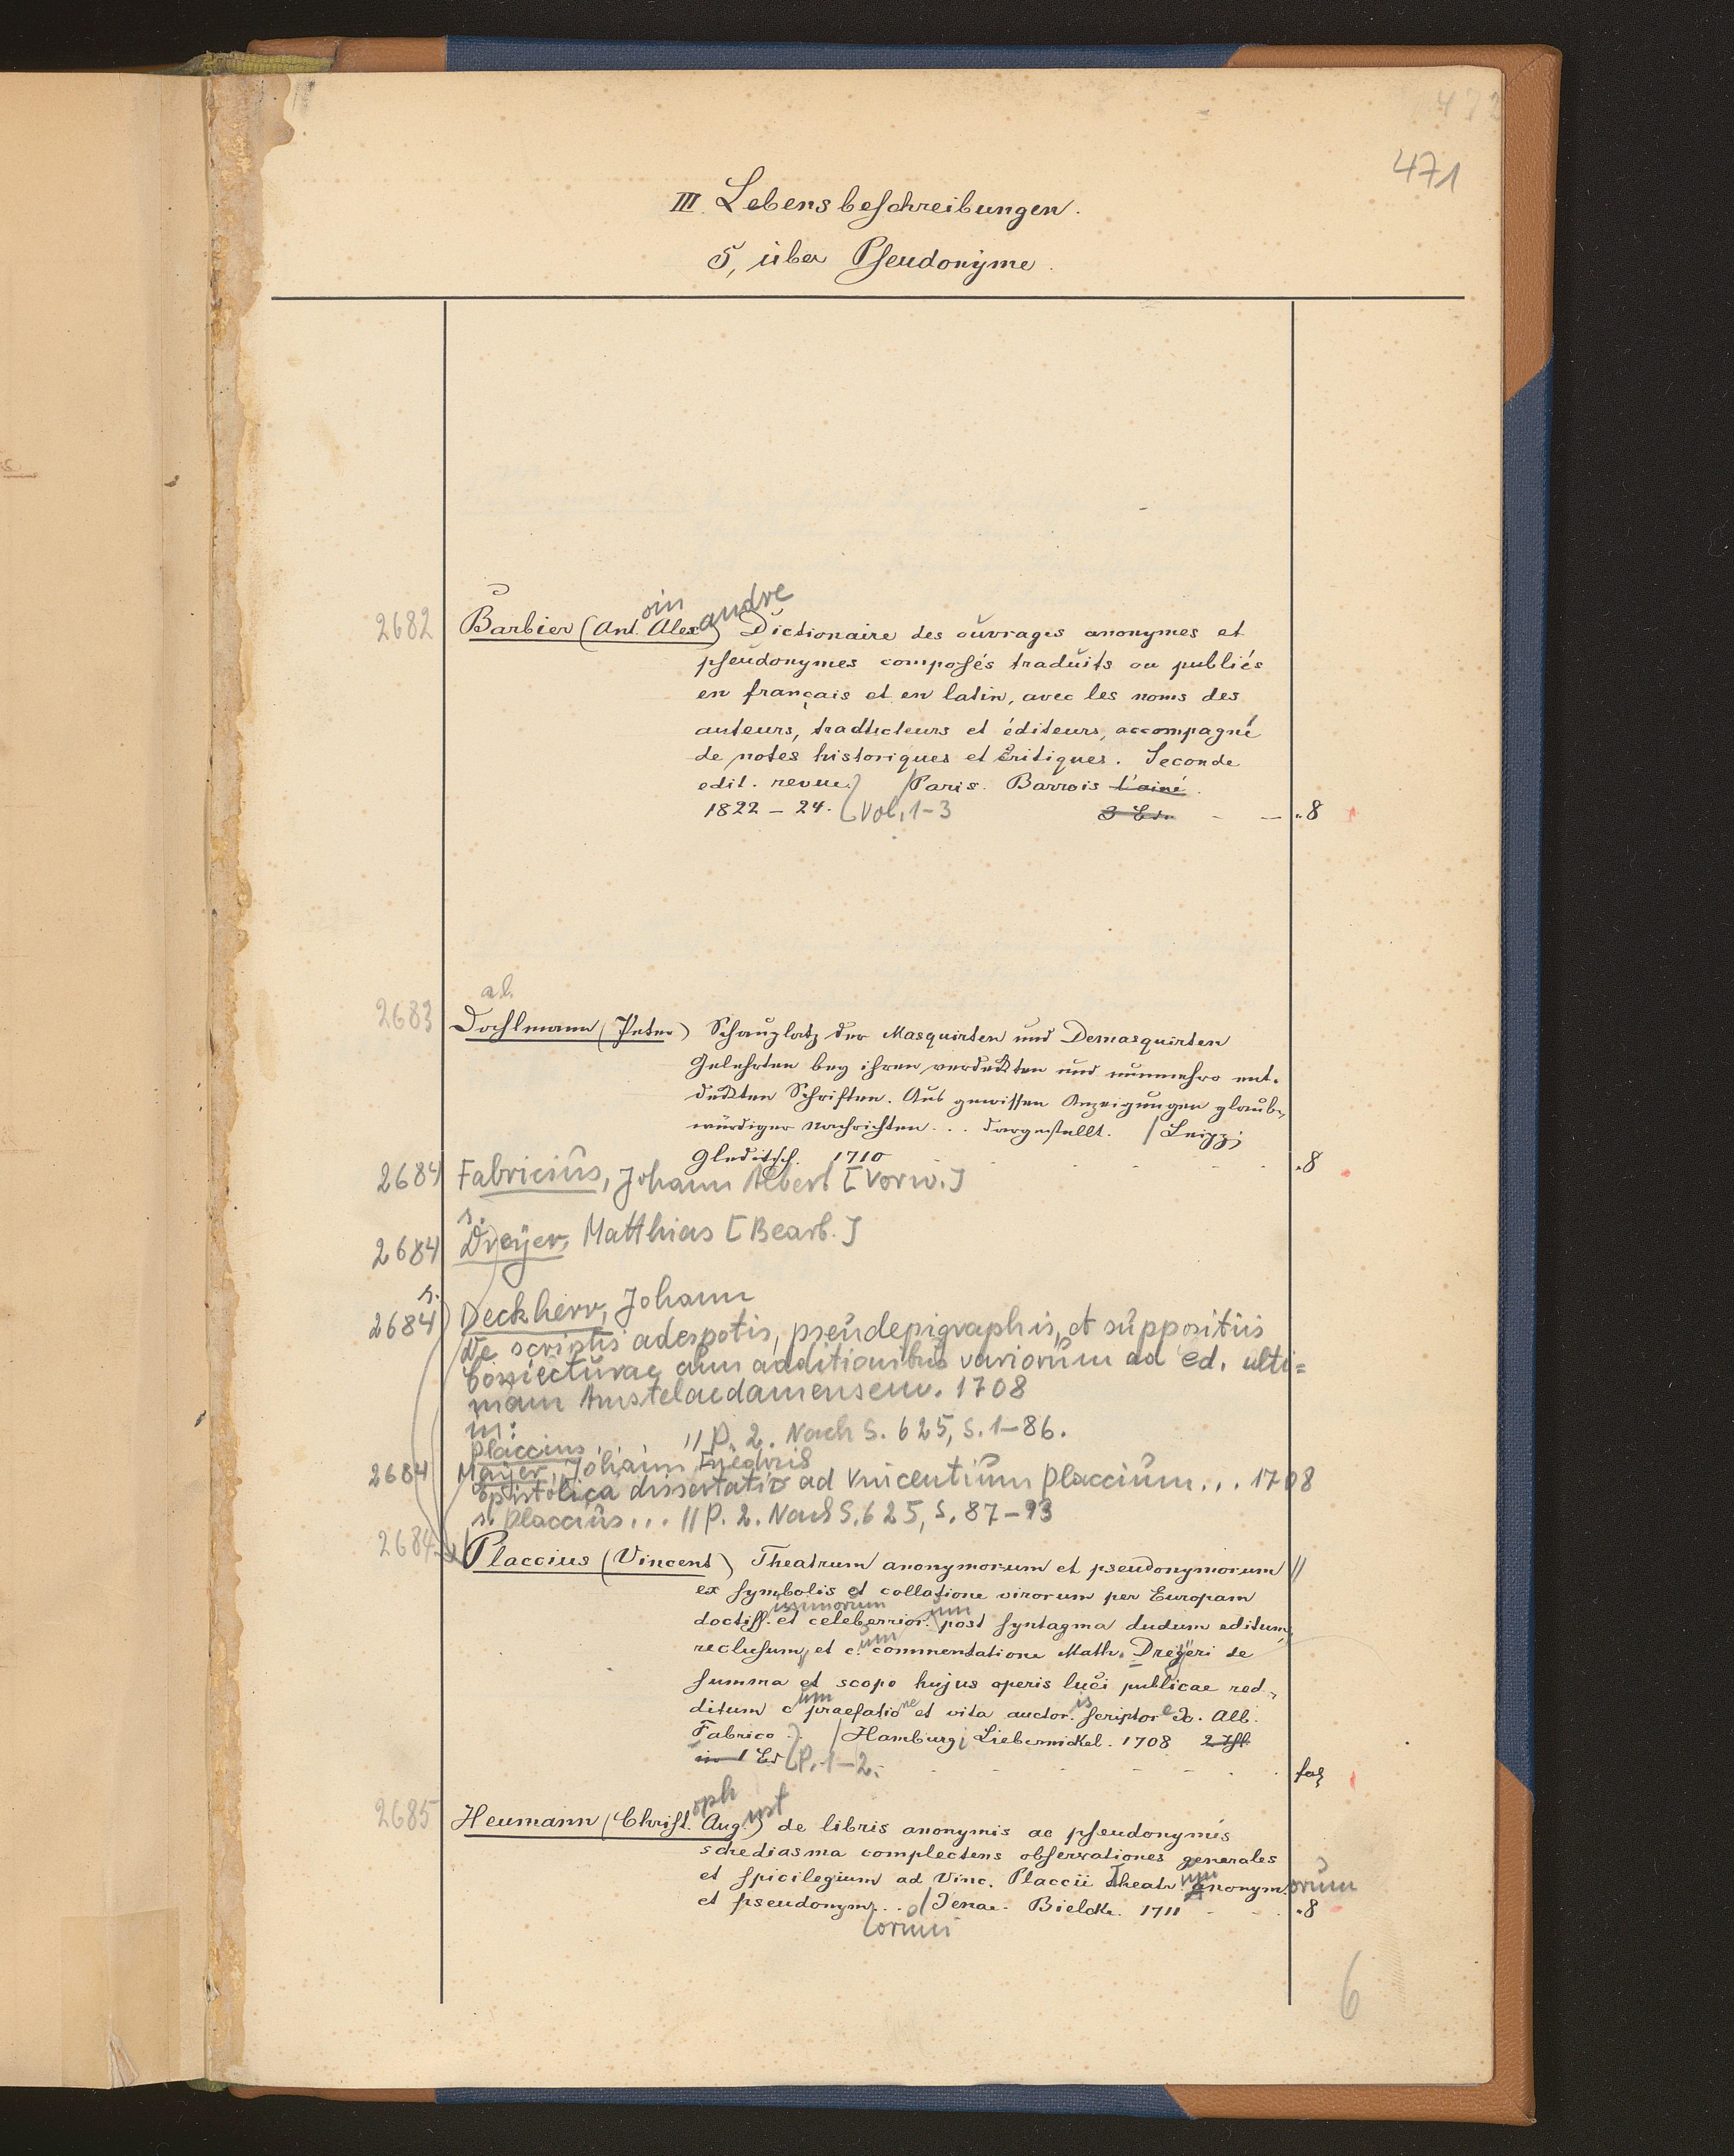 471
III. Lebensbeschreibungen.
5, über Pseudonyme.
2682 Barbier (Ant.oin Alexandre) Dictionaire des ouvrages anonymes et
pseudonymes composés traduits ou publiés
en français et en latin, avec les noms des
auteurs, traducteurs et éditeurs, accompagné
de notes historiques et critiques. Seconde
edit. revue. / Paris. Barrois l'ainé.
1822 – 24. [Vol. 1-3 3 Bd. – — „8
al.
2683 Dahlmann (Peter) Schauplatz der Masquirten und Demasquirten
Gelehrten bey ihren verdekten und nunmehro ent-
dekten Schriften. Aus gewissen Anzeigungen glaub-
würdiger Nachrichten... dargestellt. / Leipz;
Gleditsch. 1710 „8
2684 Fabricius, Johann Albert [Vorw.]
s.
2684 Dreyer, Matthias [Bearb.]
s.
2684 Deckherr, Johann
De scriptis adespotis, pseudepigraphis, et suppositiis
Coniecturae cum additionibus variorum ad ed. ulti=
mam Amstelaedamensem. 1708
in:
Placcius... // P. 2. Nach S. 625, S. 1–86.
2684 Mayer, Johann Friedrich
Epistolica dissertatio ad Vincentium Placcium... 1708
s. Placcius... // P. 2. Nach S. 625, S. 87–93
2684 Placcius (Vincent) Theatrum anonymorum et pseudonymorum //
ex symbolis et collatione virorum per Europam
doctiss.issimorum et celeberrior.um post syntagma dudum editum,
reclusum, et c.um commentatione Math. Dreyeri de
summa et scopo hujus operis luci publicae red-
ditum c.um praefatione et vita auctor.is scriptore Jo. Alb.
Fabrico.. / Hamburg; Liebernickel. 1708 2 Thl.
in 1 Bd [P. 1–2. fol
2685 Heumann (Christ.oph Aug.ust) de libris anonymis ac pseudonymis
schediasma complectens observationes generales
et spicilegium ad Vinc. Placcii Theatr.um anonym.orum
et pseudonym... / Jenae. Bielcke. 1711 „8
orum
6